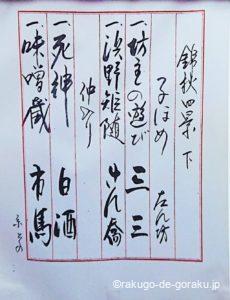 錦秋四景 下
子ほめ 左ん坊
一、坊主の遊び 三三
一、浜野矩随 さん喬
仲入り
一、死神 白酒
一、味噌蔵 市馬
©rakugo-de-goraku.jp